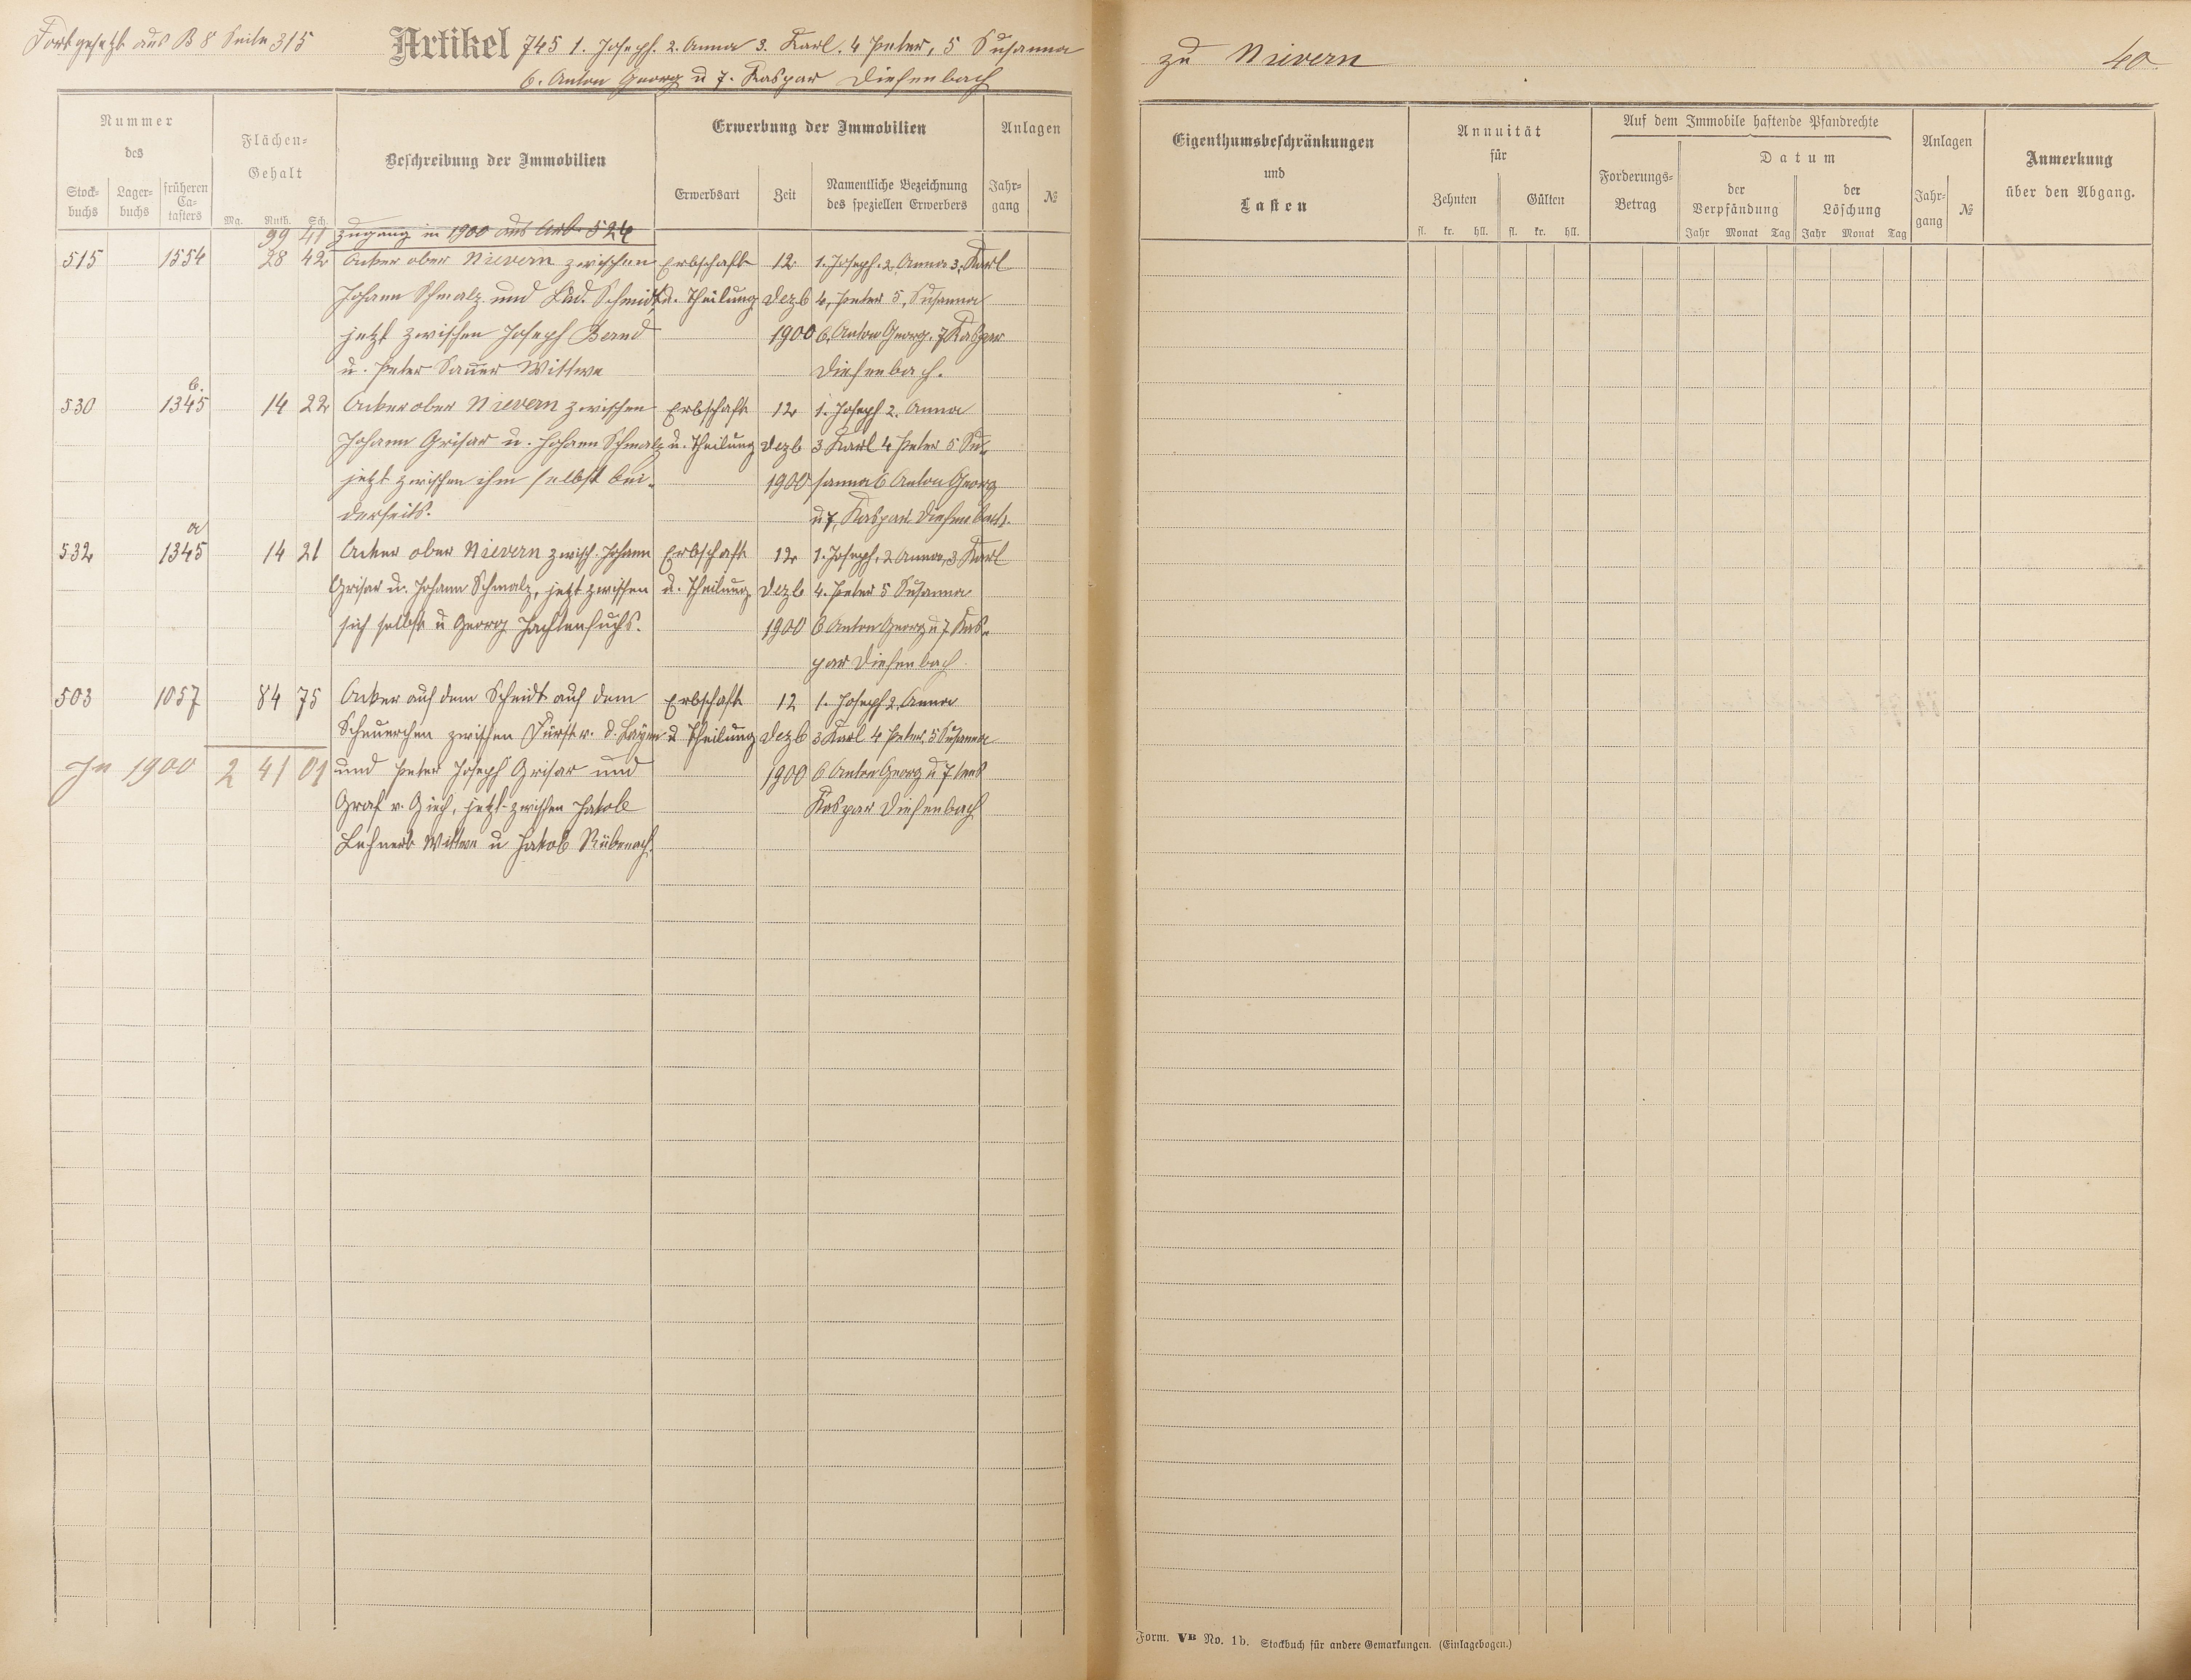 Fortgesetzt aus B 8 Seite 315
Artikel 745 1. Joseph. 2. Anna 3. Karl. 4 Peter, 5 Susanna
6. Anton Georg u 7. Kaspar Diefenbach
Nummer
des
Stock-
buchs
Lager-
buchs
früheren
Ca-
tasters
Flächen-
Gehalt
Ma. Ruth. Sch.
Beschreibung der Immobilien
Erwerbung der Immobilien
Erwerbsart
Zeit
Namentliche Bezeichnung
des speziellen Erwerbers
Anlagen
Jahr-
gang
№
99 41 Zugang in 1900 aus Art. 524
515 1554 28 42 Acker ober Nievern zwischen Erbschaft 12 1. Joseph. 2. Anna 3. Karl
Johann Schmalz und Lud. Schmidt, u. Theilung Dezb 4, Peter 5, Susanna
jetzt zwischen Joseph Bernd 1900 6, Anton Georg. 7 Kaspar
u. Peter Sauer Wittwe Diefenbach.
b.
530 1345 14 22 Acker ober Nievern zwischen Erbschaft 12 1. Joseph 2. Anna
Johann Grisar u. Johann Schmalz u. Theilung Dezb 3 Karl 4 Peter 5 Su-
jetzt zwischen ihm selbst bei- 1900 sanna 6 Anton Georg
derseits. u 7, Kaspar Diefenbach.
a
532 1345 14 21 Acker ober Nievern zwisch. Johann Erbschaft 12 1. Joseph, 2 Anna, 3 Karl
Grisar u. Johann Schmalz, jetzt zwischen u. Theilung Dezb 4. Peter 5 Susanna
sich selbst u Georg Hachtenfuchs. 1900 6 Anton Georg u 7 Kas-
par Diefenbach.
503 1057 84 75 Acker auf dem Scheidt auf dem Erbschaft 12 1. Joseph 2, Anna
Scheuerchen zwischen Fürst v. d. Leyen u Theilung Dezb 3 Karl 4 Peter, 5 Susanna
In 1900 2 41 01 und Peter Joseph Grisar und 1900 6 Anton Georg u 7
Graf v. Giech, jetzt zwischen Jakob Kaspar Diefenbach
Lehnert Wittwe u Jakob Rübenach.
zu Nievern
40
Eigenthumsbeschränkungen
und
Lasten
Annuität
für
Zehnten
Gülten
fl. kr. hll. fl. kr. hll.
Auf dem Immobile haftende Pfandrechte
Forderungs-
Betrag
Datum
der
Verpfändung
der
Löschung
Jahr Monat Tag Jahr Monat Tag
Anlagen
Jahr-
gang
№
Anmerkung
über den Abgang.
Form. VB No. 1b. Stockbuch für andere Gemarkungen. (Einlagebogen.)